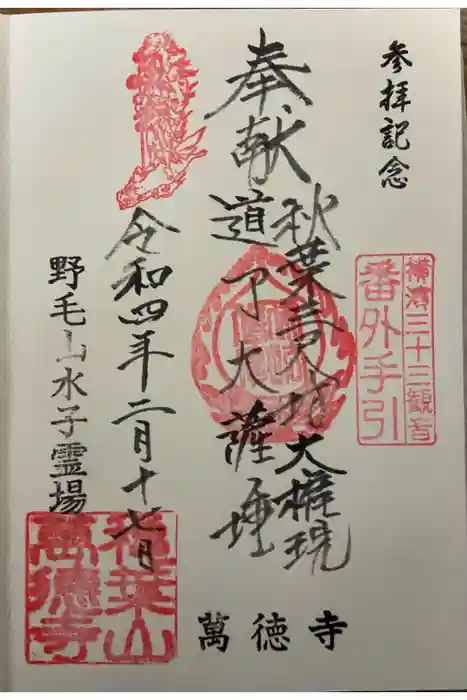 参拝記念
横濱三十三観音
番外手引
奉献
秋葉三尺坊大権現
道了大薩埵
令和四年二月十七日
野毛山水子霊場
秋葉山
萬德寺
萬徳寺